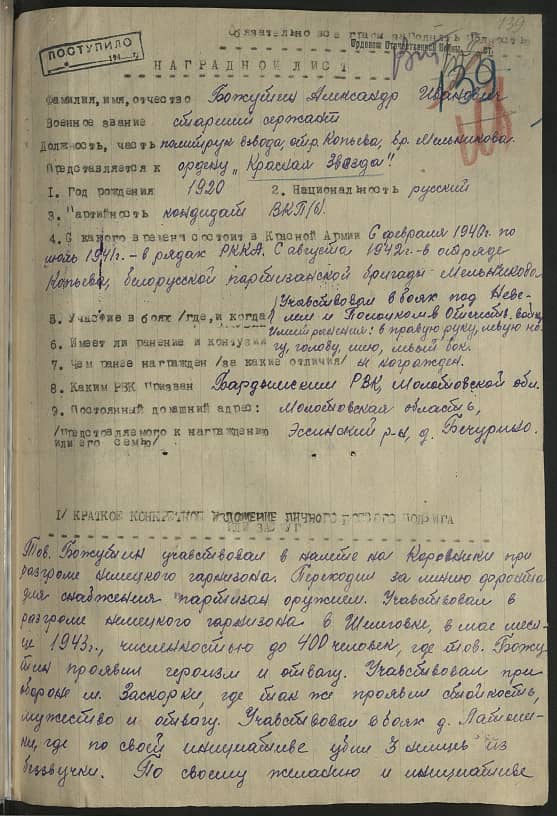 139
Обязательно все графы заполнять полностью
Орденом Отечественной Войны ст.
ПОСТУПИЛО
194
139
НАГРАДНОЙ ЛИСТ
Фамилия, имя, отчество Божутин Александр Иванович
Военное звание старший сержант
Должность, часть политрук взвода, отр. Копьева, бр. Мельникова.
Представляется к ордену „Красная Звезда"
1. Год рождения 1920 2. Национальность русский
3. Партийность кандидат ВКП(б).
4. С какого времени состоит в Красной Армии С февраля 1940г. по
июль 1941г. – в рядах РККА. С августа 1942г. – в отряде
Копьева, белорусской партизанской бригады Мельникова
5. Участие в боях /где, и когда/ Учавствовал в боях под Неве-
лем и Полоцком в Отечеств. войну
6. Имеет ли ранение и контузии имеет ранения: в правую руку, левую но-
гу, голову, шею, левый бок.
7. Чем ранее награжден /за какие отличия/ не награжден.
8. Каким РВК призван Бардымским РВК, Молотовской обл.
9. Постоянный домашний адрес: Молотовская область,
/представляемого к награждению Эссинский р-н, д. Бичурино.
или его семьи/
I/ КРАТКОЕ КОНКРЕТНОЕ ИЗЛОЖЕНИЕ ЛИЧНОГО БОЕВОГО ПОДВИГА
ИЛИ ЗАСЛУГ
Тов. Божутин учавствовал в налете на Коровники при
разгроме немецкого гарнизона. Переходил за линию фронта
для снабжения партизан оружием. Учавствовал в
разгроме немецкого гарнизона в в мае меся-
це 1943г., численностью до 400 человек, где тов. Божу-
тин проявил героизм и отвагу. Учавствовал при
обороне м. Заскорки, где так же проявил стойкость,
мужество и отвагу. Учавствовал в боях д.
ни, где по своей инициативе убил 3 немцев из
безвучки. По своему желанию и инициативе